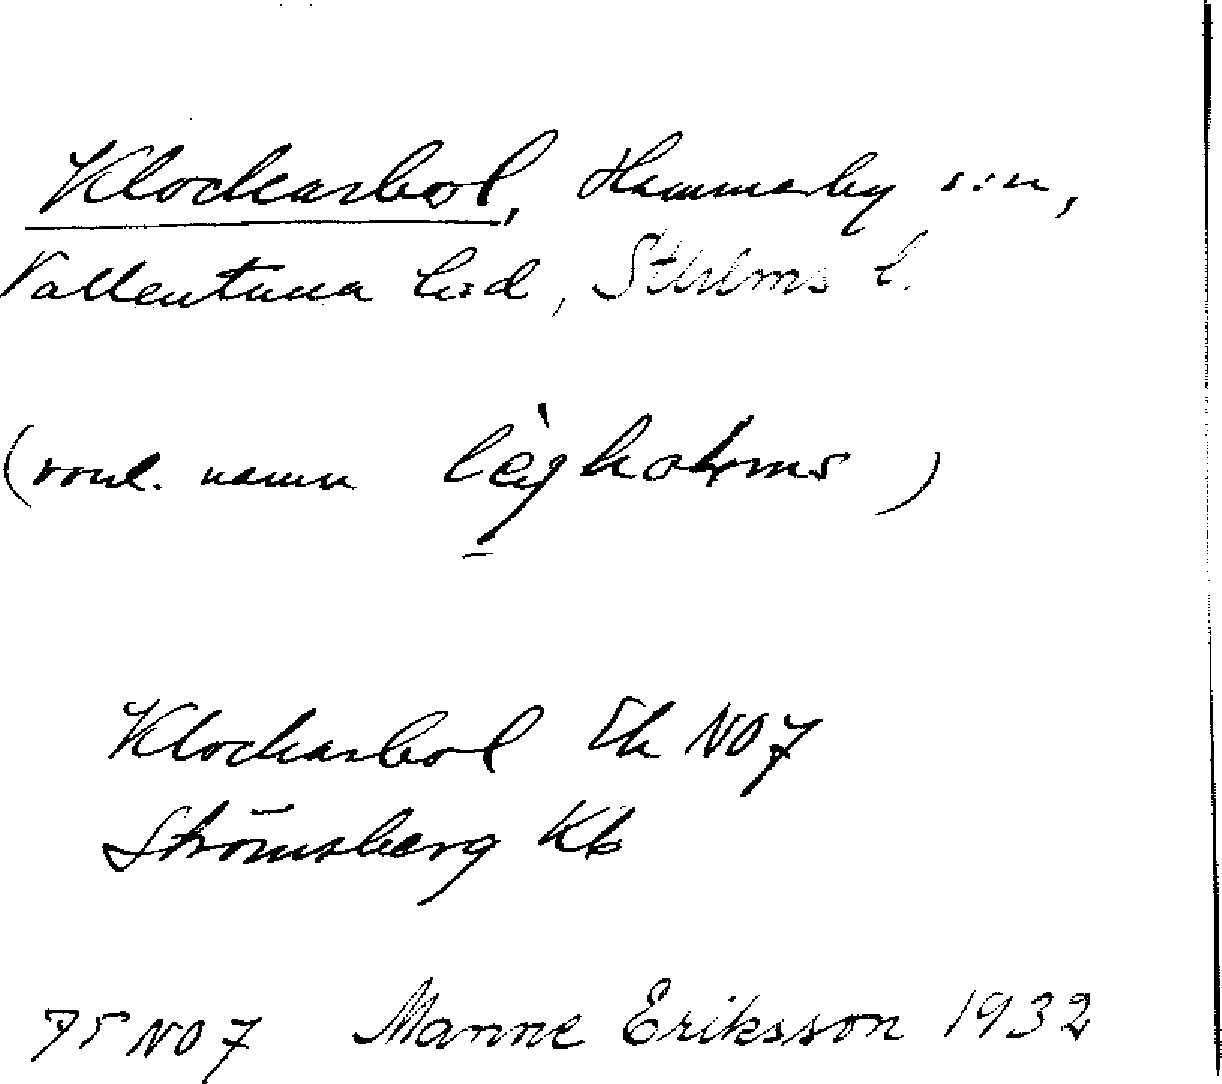 Klockarbol, Hammarby sn,
Vallentuna hd, Sthlms l.
(vanl. namn
Klockarbol Ek NO7
Strömsberg Kb
75 NO7 Manne Eriksson 1932